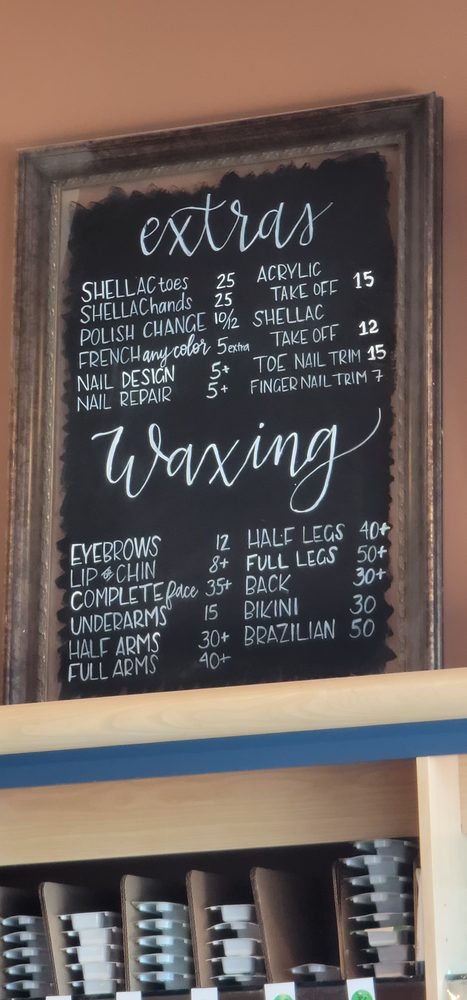 extras
SHELLAC toes 25
SHELLAC hands 25
POLISH CHANGE 10/12
FRENCH any color 5 extra
NAIL DESIGN 5+
NAIL REPAIR 5+
ACRYLIC
TAKE OFF 15
SHELLAC
TAKE OFF 12
TOE NAIL TRIM 15
FINGER NAIL TRIM 7
Waxing
EYEBROWS 12
LIP & CHIN 8+
COMPLETE face 35+
UNDERARMS 15
HALF ARMS 30+
FULL ARMS 40+
HALF LEGS 40+
FULL LEGS 50+
BACK 30+
BIKINI 30
BRAZILIAN 50